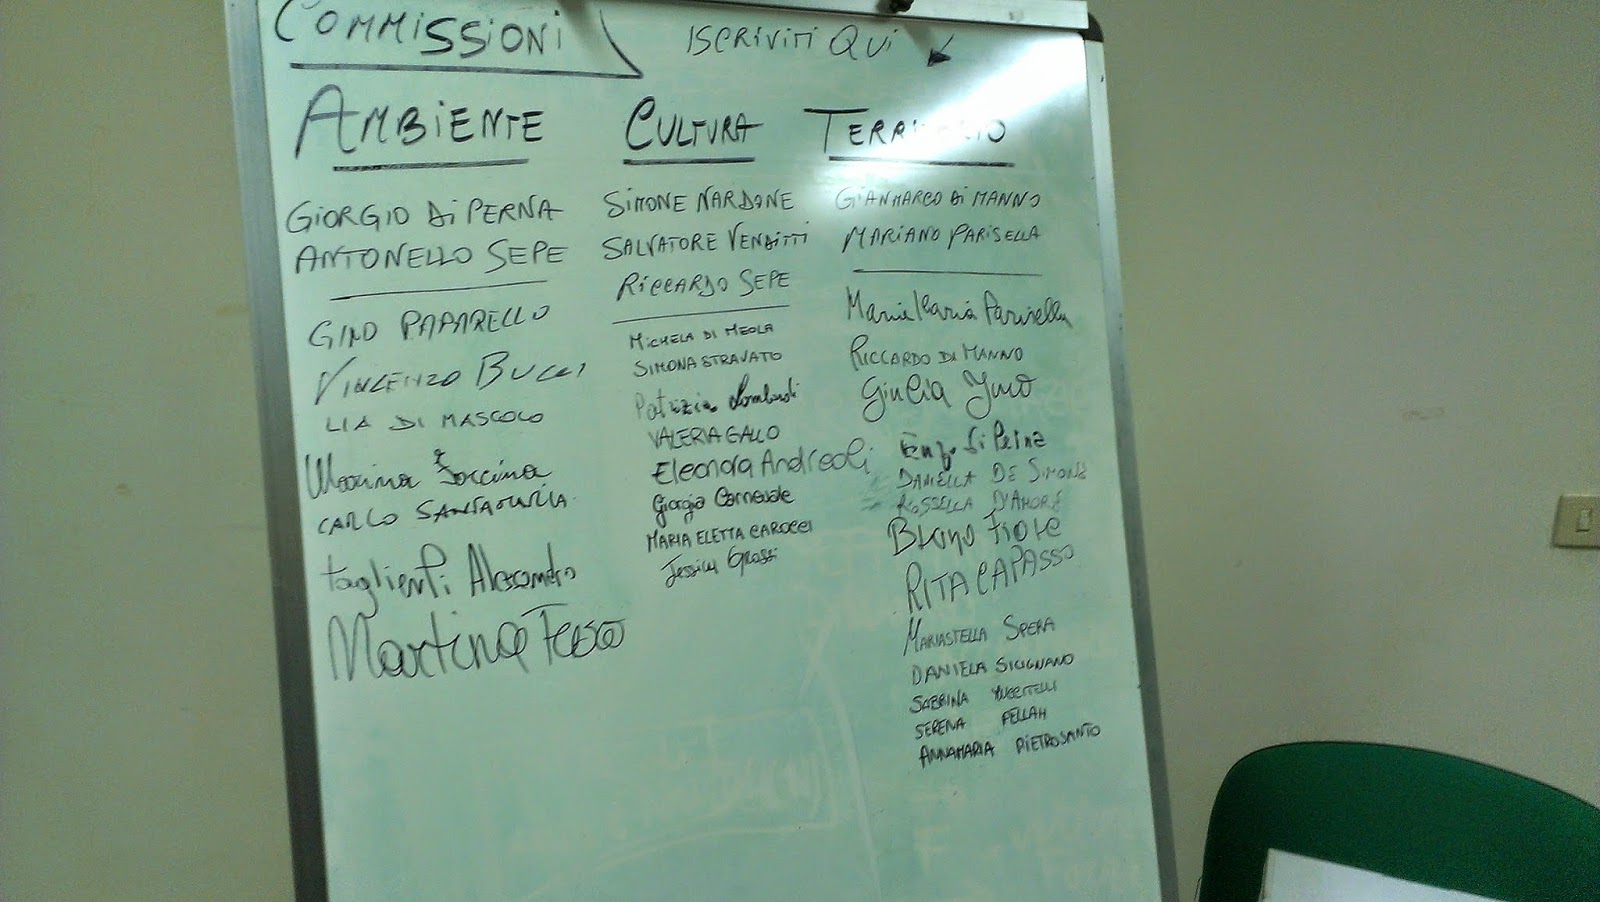 COMMISSIONI
ISCRIVITI QUI
AMBIENTE
GIORGIO DI PERNA
ANTONELLO SEPE
GINO PAPARELLO
VINCENZO BUCCI
LIA DI MASCOLO
CARLO SANTAMARIA
taglienti Alessandro
Martina
CULTURA
SIMONE NARDONE
SALVATORE VENDITTI
RICCARDO SEPE
MICHELA DI MEOLA
SIMONA STRAVATO
Patrizia Lombardi
VALERIA GALLO
Eleonora Andreoli
Giorgia Carnevale
MARIA ELETTA CAROCCI
Jessica Grossi
TERRITORIO
GIANMARCO DI MANNO
MARIANO PARISELLA
Maria Ilaria Parisella
RICCARDO DI MANNO
Giulia
Enzo Di Perna
DANIELLA DE SIMONE
ROSSELLA D'AMORE
Bruno Fiore
RITA CAPASSO
MARIASTELLA SPERA
DANIELA SICIGNANO
SABRINA
SERENA FELLAH
ANNAMARIA PIETROSANTO